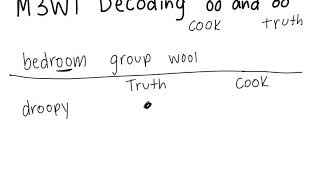 M3W1 Decoding oo and oo
cook truth
bedroom group wool
Truth Cook
droopy